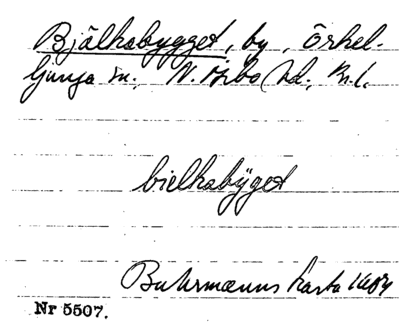 Bjälkabygget, by, Örkel-
ljunga sn., N. Åsbo hd., M.l.
bielkabÿget
Buhrmanns karta 1684
Nr 5507.